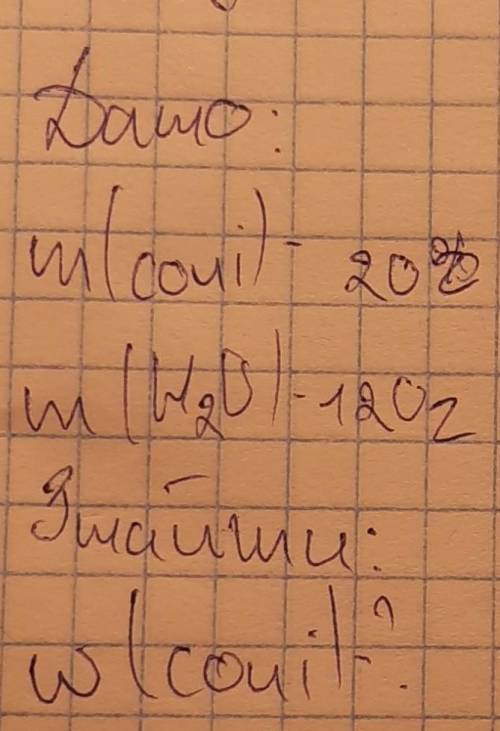 Дано:
m(солі)- 20г
m(H₂O)-120г
Знайти:
w(солі)-?